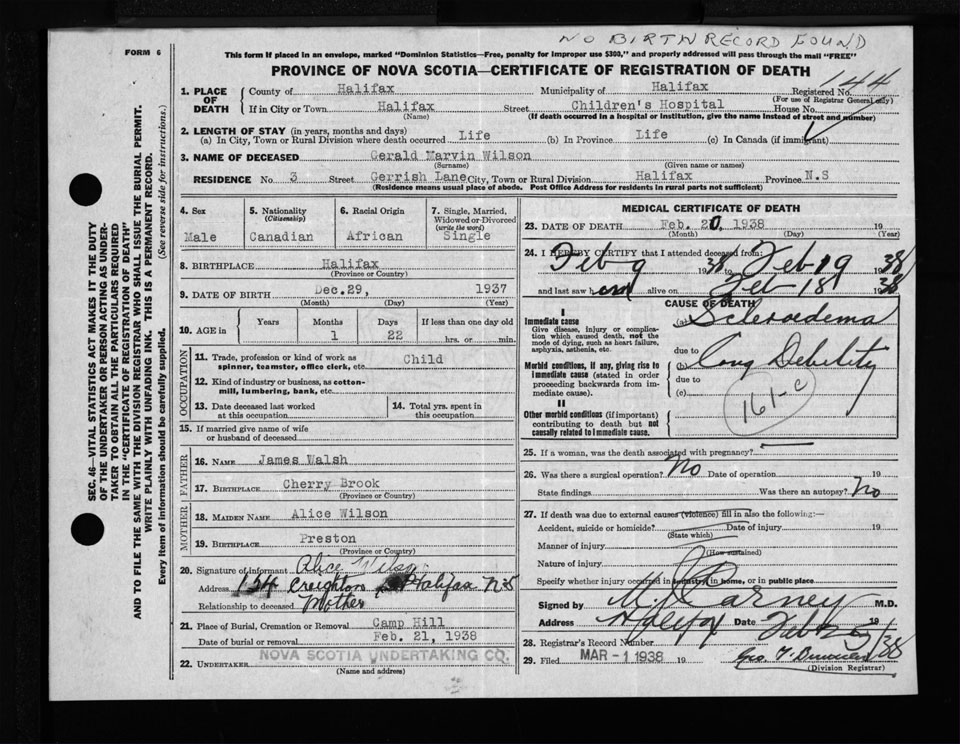 NO BIRTH RECORD FOUND
FORM 6
This form if placed in an envelope, marked "Dominion Statistics—Free, penalty for improper use $300," and properly addressed will pass through the mail "FREE"
PROVINCE OF NOVA SCOTIA—CERTIFICATE OF REGISTRATION OF DEATH
144
SEC. 46—VITAL STATISTICS ACT MAKES IT THE DUTY
OF THE UNDERTAKER OR PERSON ACTING AS UNDER-
TAKER TO OBTAIN ALL THE PARTICULARS REQUIRED
IN THE "CERTIFICATE OF REGISTRATION OF DEATH"
AND TO FILE THE SAME WITH THE DIVISION REGISTRAR WHO SHALL ISSUE THE BURIAL PERMIT.
WRITE PLAINLY WITH UNFADING INK. THIS IS A PERMANENT RECORD.
Every item of information should be carefully supplied. (See reverse side for instructions.)
1. PLACE OF DEATH County of Halifax Municipality of Halifax Registered No.
(For use of Registrar General only)
If in City or Town Halifax Street Children's Hospital House No.
(Name) (If death occurred in a hospital or institution, give the name instead of street and number)
2. LENGTH OF STAY (in years, months and days)
(a) In City, Town or Rural Division where death occurred Life (b) In Province Life (c) In Canada (if immigrant)
3. NAME OF DECEASED Gerald Marvin Wilson
(Surname) (Given name or names)
RESIDENCE No 3 Street Gerrish Lane City, Town or Rural Division Halifax Province N.S
(Residence means usual place of abode. Post Office Address for residents in rural parts not sufficient)
4. Sex
Male
5. Nationality
(Citizenship)
Canadian
6. Racial Origin
African
7. Single, Married,
Widowed or Divorced
(write the word)
Single
8. BIRTHPLACE Halifax
(Province or Country)
9. DATE OF BIRTH Dec.29, 1937
(Month) (Day) (Year)
10. AGE in Years Months Days If less than one day old
1 22 hrs. or min.
OCCUPATION
11. Trade, profession or kind of work as
spinner, teamster, office clerk, etc. Child
12. Kind of industry or business, as cotton-
mill, lumbering, bank, etc.
13. Date deceased last worked
at this occupation
14. Total yrs. spent in
this occupation
15. If married give name of wife
or husband of deceased
FATHER
16. NAME James Walsh
17. BIRTHPLACE Cherry Brook
(Province or Country)
MOTHER
18. MAIDEN NAME Alice Wilson
19. BIRTHPLACE Preston
(Province or Country)
20. Signature of informant Alice Wilson
Address 134 Creighton Halifax NS
Relationship to deceased Mother
21. Place of Burial, Cremation or Removal Camp Hill
Date of burial or removal Feb. 21, 1938
22. UNDERTAKER NOVA SCOTIA UNDERTAKING CO.
(Name and address)
MEDICAL CERTIFICATE OF DEATH
23. DATE OF DEATH Feb. 20, 1938
(Month) (Day) (Year)
24. I HEREBY CERTIFY that I attended deceased from:
Feb 9 1938 to Feb 19 1938
and last saw h alive on Feb 18 1938
CAUSE OF DEATH
I
Immediate cause
Give disease, injury or complica-
tion which caused death, not the
mode of dying, such as heart failure,
asphyxia, asthenia, etc.
(a) Scleroedema
due to
Morbid conditions, if any, giving rise to
immediate cause (stated in order
proceeding backwards from im-
mediate cause).
(b) Cong Debility
due to
(c)
161-c
II
Other morbid conditions (if important)
contributing to death but not
causally related to immediate cause.
25. If a woman, was the death associated with pregnancy?
26. Was there a surgical operation? No Date of operation 19
State findings Was there an autopsy? No
27. If death was due to external causes (violence) fill in also the following:—
Accident, suicide or homicide? Date of injury 19
(State which)
Manner of injury
(How sustained)
Nature of injury
Specify whether injury occurred in industry, in home, or in public place
Signed by M. J. Carney M.D.
Address Halifax Date Feb 25 1938
28. Registrar's Record Number
29. Filed MAR - 1 1938 19
(Division Registrar)